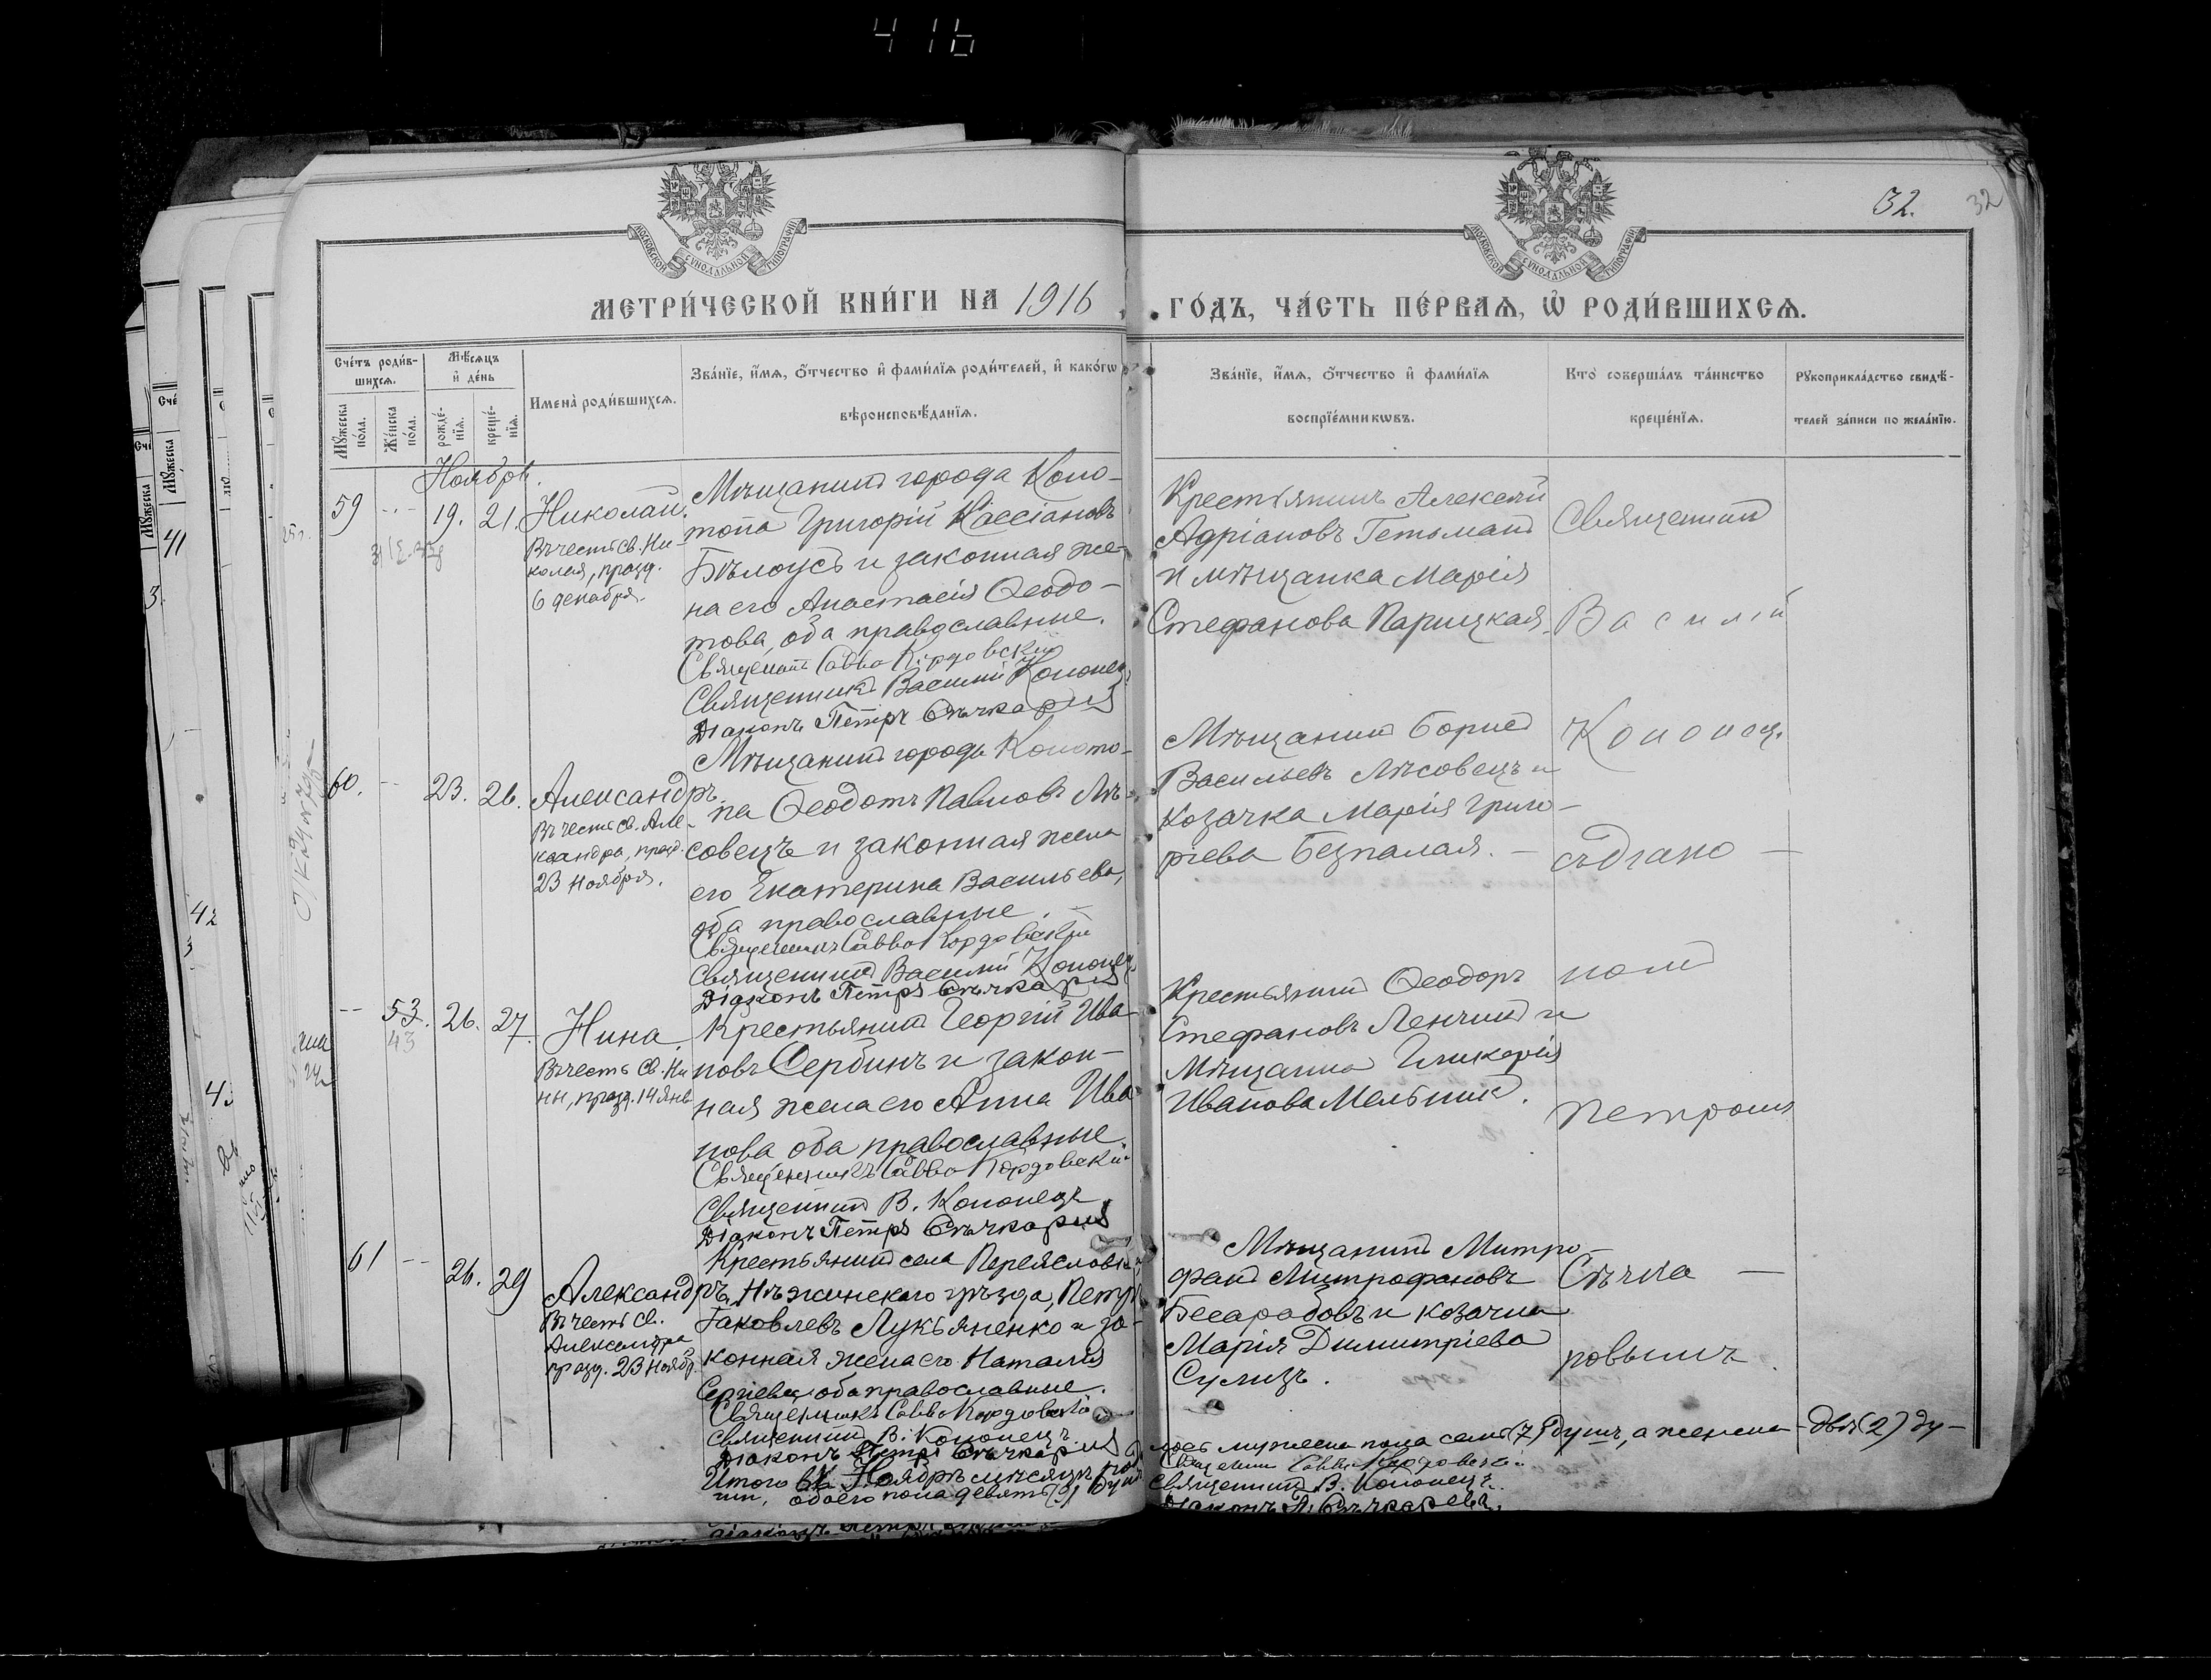 416
32.
32
МОСКОВСКОЙ СѴНОДАЛЬНОЙ ТИПОГРАФІИ
МОСКОВСКОЙ СѴНОДАЛЬНОЙ ТИПОГРАФІИ
МЕТРИ́ЧЕСКОЙ КНИ́ГИ НА 1916 ГО́ДЪ, ЧА́СТЬ ПЕ́РВАѦ, Ѽ РОДИ́ВШИХСѦ.
Сче́тъ роди́в-
шихсѧ.
Мꙋ́жеска по́ла.
Же́нска по́ла.
Мѣ́сѧцъ и҆ де́нь
рожде́-нїѧ.
креще́-нїѧ.
Имена̀ роди́вшихсѧ.
Зва́нїе, и҆́мѧ, ѻ҆́тчество и҆ фами́лїѧ роди́телей, и҆ како́гѡ
вѣроисповѣ́данїѧ.
Зва́нїе, и҆́мѧ, ѻ҆́тчество и҆ фами́лїѧ
воспрїе́мникѡвъ.
Кто̀ соверша́лъ та́инство
креще́нїѧ.
Рꙋкоприкла́дство свидѣ́-
телей за́писи по жела́нїю.
Ноябрь.
59 -- 19. 21. Николай.
Въ честь св. Ни-
колая, празд.
6 декабря.
Мѣщанинъ города Коно-
топа Григорій Кассіановъ
Бѣлоусъ и законная же-
на его Анастасія Ѳеодо-
това, оба православные.
Священникъ Савва Кордовскій
Священникъ Василій Кононец.
Діаконъ Петръ Сѣчкаревъ
Крестьянинъ Алексѣй
Адріановъ Гетьманъ
и мѣщанка Марія
Стефанова Парицкая.
Священникъ
Василій
Кононец.
съ діако-
номъ
Петромъ
Сѣчка-
ровымъ.
60. -- 23. 26. Александръ.
Въ честь св. Але-
ксандра, празд.
23 ноября.
Мѣщанинъ города Коното-
па Ѳеодотъ Павловъ Лѣ-
совецъ и законная жена
его Екатерина Васильева,
оба православные.
Священникъ Савва Кордовскій
Священникъ Василій Кононец.
Діаконъ Петръ Сѣчкаревъ
Мѣщанинъ Борисъ
Васильевъ Лѣсовецъ и
козачка Марія Григо-
ріева Безпалая.
-- 53. 26. 27. Нина.
43
Въ честь св. Ни-
ны, празд. 14 янв.
Крестьянинъ Георгій Ива-
новъ Сербинъ и закон-
ная жена его Анна Ива-
нова оба православные.
Священникъ Савва Кордовскій
Священникъ В. Кононецъ
Діаконъ Петръ Сѣчкаревъ
Крестьянинъ Ѳеодоръ
Стефановъ Ленчикъ и
Мѣщанка Гликерія
Иванова Мельникъ.
61 -- 26. 29 Александръ,
Въ честь св.
Александра
празд. 23 нояб.
Крестьянинъ села Переясловки,
Нѣжинскаго уѣзда, Петръ
Іаковлевъ Лукьяненко и за-
конная жена его Наталія
Сергіева, оба православные.
Священникъ Савва Кордовскій
Священникъ В. Кононецъ
Діаконъ Петръ Сѣчкаревъ
Мѣщанинъ Митро-
фанъ Митрофановъ
Бесарабовъ и козачка
Марія Димитріева
Сулизъ.
Итого въ Ноябрѣ мѣсяцѣ род
лось мужеска пола семь (7) душъ, а женска - двѣ (2) ду-
ши, обоего пола девять (9) душъ
Священникъ Савва Кордовскій
Священникъ В. Кононецъ.
Діаконъ П. Сѣчкаревъ.